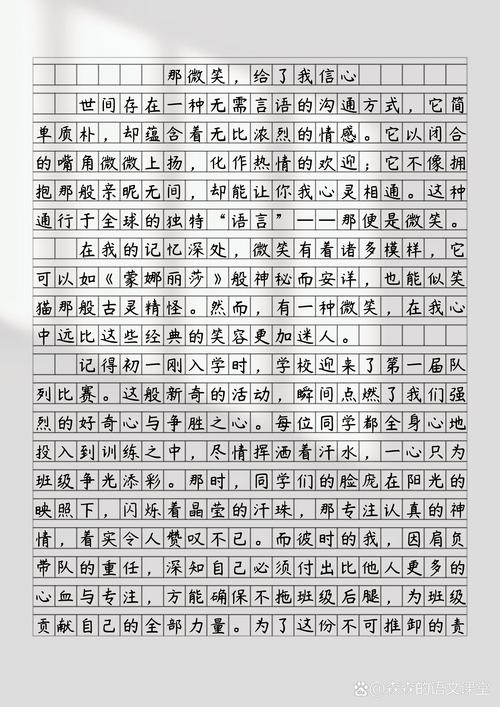 那微笑，给了我信心
世间存在一种无需言语的沟通方式，它简
单质朴，却蕴含着无比浓烈的情感。它以闭合
的嘴角微微上扬，化作热情的欢迎；它不像拥
抱那般亲昵无间，却能让你我心灵相通。这种
通行于全球的独特“语言”——那便是微笑。
在我的记忆深处，微笑有着诸多模样，它
可以如《蒙娜丽莎》般神秘而安详，也能似笑
猫那般古灵精怪。然而，有一种微笑，在我心
中远比这些经典的笑容更加迷人。
记得初一刚入学时，学校迎来了第一届队
列比赛。这般新奇的活动，瞬间点燃了我们强
烈的好奇心与争胜之心。每位同学都全身心地
投入到训练之中，尽情挥洒着汗水，一心只为
班级争光添彩。那时，同学们的脸庞在阳光的
映照下，闪烁着晶莹的汗珠，那专注认真的神
情，着实令人赞叹不已。而彼时的我，因肩负
带队的重任，深知自己必须付出比他人更多的
心血与专注，方能确保不拖班级后腿，为班级
贡献自己的全部力量。为了这份不可推卸的责
@森森的语文课堂